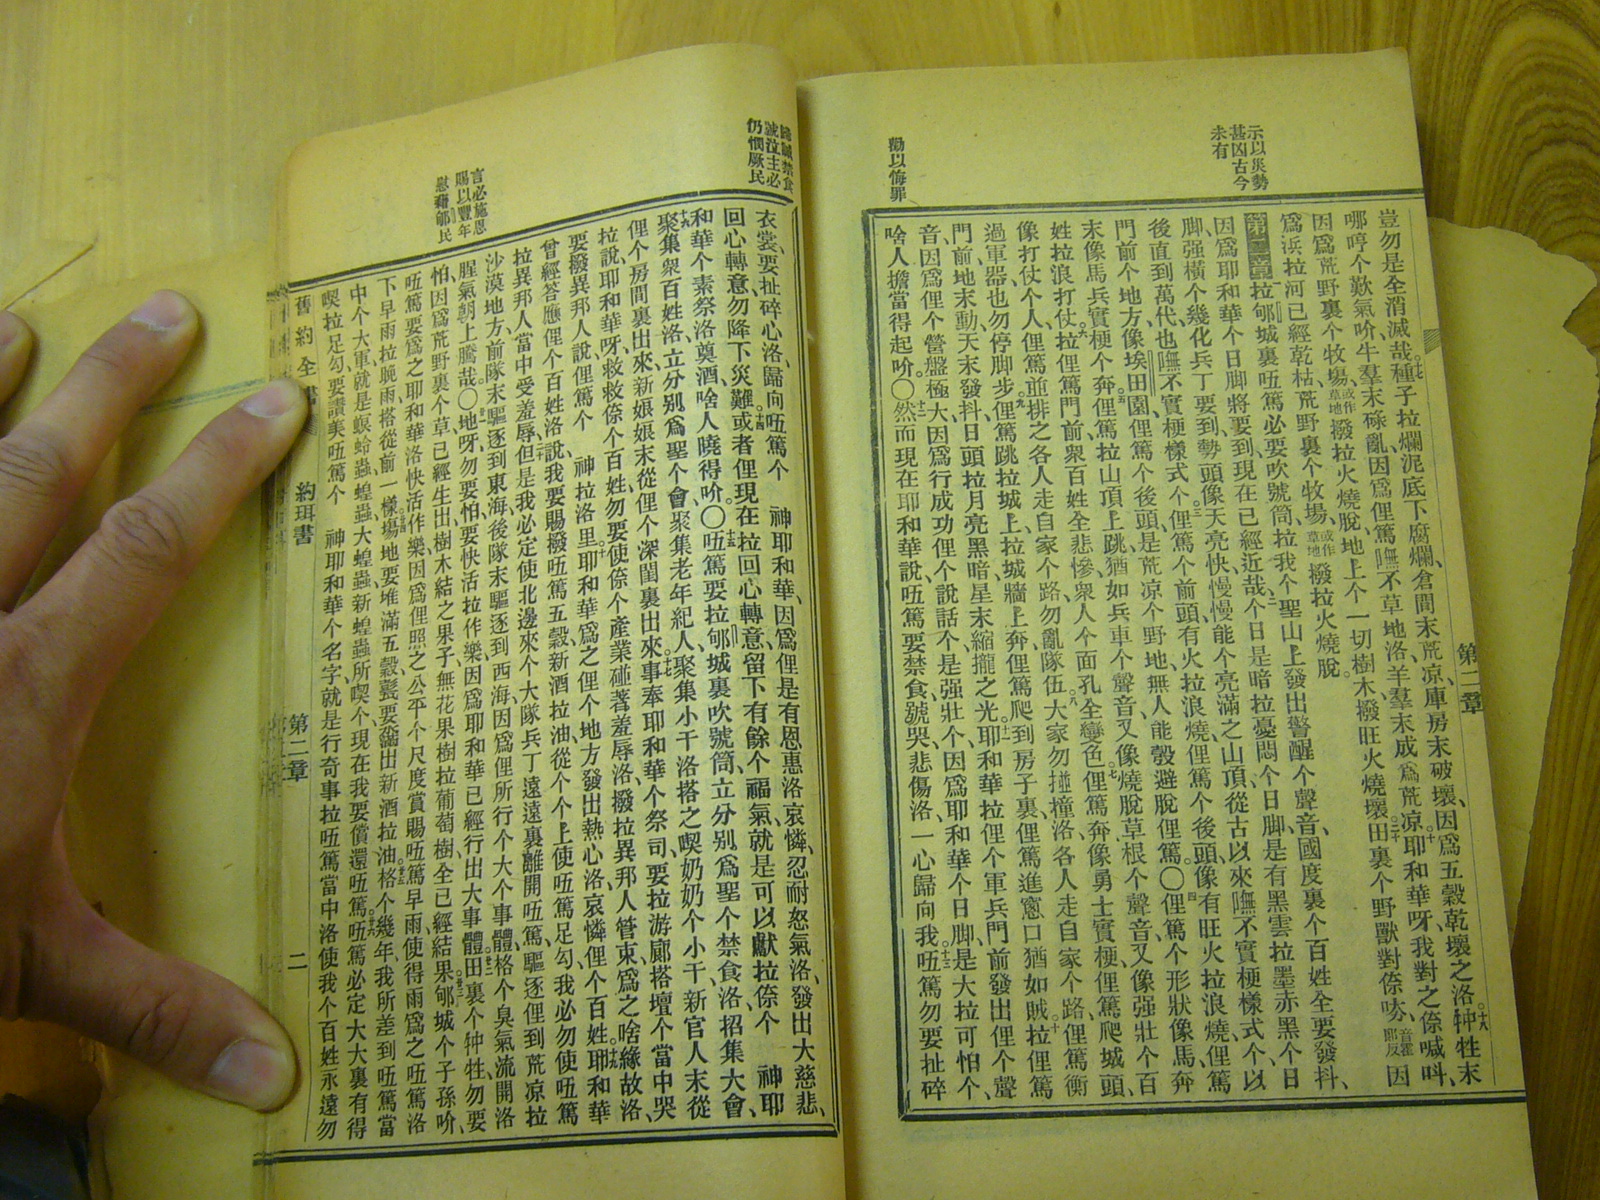 示以災勢
甚凶古今
未有
勸以悔罪
第二章
豈勿是全消滅哉種子拉爛泥底下腐爛、倉間末荒凉、庫房末破壞、因爲五穀乾壞之洛、
哪哼个歎氣吤、牛羣末碌亂、因爲俚篤嘸不草地洛、羊羣末成爲荒凉、耶和華呀、我對之倷喊呌、
因爲荒野裏个牧塲、或作草地撥拉火燒脫、地上个一切樹木、撥旺火燒壞、田裏个野獸對倷
爲浜拉河已經乾枯、荒野裏个牧場、或作草地撥拉火燒脫。
第二章拉郇城裏㕶篤必要吹號筒、拉我个聖山上發出警醒个聲音、國度裏个百姓全要發抖、
因爲耶和華个日脚將要到、現在已經近哉、个日是暗拉憂悶个日脚、是有黑雲拉墨赤黑个日
脚、强橫个幾化兵丁要到、勢頭像天亮快慢慢能个亮滿之山頂、從古以來嘸不實梗樣式个、以
後直到萬代也嘸不實梗樣式个、俚篤个前頭有火拉浪燒、俚篤个後頭像有旺火拉浪燒、俚篤
門前个地方像埃田園、俚篤个後頭是荒凉个野地、無人能彀避脫俚篤。〇俚篤个形狀像馬、奔
末像馬兵實梗个奔、俚篤拉山頂上跳、猶如兵車个聲音、又像燒脫草根个聲音、又像强壯个百
姓拉浪打仗、拉俚篤門前衆百姓全悲慘、衆人个面孔全變色、俚篤奔像勇士實梗、俚篤爬城頭、
像打仗个人、俚篤並排之各人走自家个路、勿亂隊伍、大家勿撞洛、各人走自家个路、俚篤衡
過軍器、也勿停脚步、俚篤跳拉城上、拉城牆上奔、俚篤爬到房子裏、俚篤進窻口猶如賊、拉俚篤
門前地末動、天末發抖、日頭拉月亮黑暗、星末縮攏之光、耶和華拉俚个軍兵門前發出俚个聲
音、因爲俚个營盤極大、因爲行成功俚个說話个、是强壯个、因爲耶和華个日脚是大拉可怕个、
啥人擔當得起吤。〇然而現在耶和華說、㕶篤要禁食、號哭、悲傷洛、一心歸向我、㕶篤勿要扯碎
仍憫厥民
言必施恩
賜以豐年
慰藉郇民
衣裳、要扯碎心洛、歸向㕶篤个　神耶和華、因爲俚是有恩惠洛哀憐、忍耐怒氣洛、發出大慈悲、
回心轉意、勿降下災難、或者俚現在拉回心轉意、留下有餘个福氣、就是可以獻拉倷个　神耶
和華个素祭洛奠酒、啥人曉得吤。〇㕶篤要拉郇城裏吹號筒、立分别爲聖个禁食洛、招集大會、
聚集衆百姓洛、立分别爲聖个會、聚集老年紀人、聚集小干洛搭之喫奶奶个小干、新官人末從
俚个房間裏出來、新娘娘末從俚个深閨裏出來、事奉耶和華个祭司、要拉游廊搭壇个當中哭
拉說、耶和華呀、救救倷个百姓、勿要使倷个產業碰著羞辱洛、撥拉異邦人管束、爲之啥緣故洛、
要撥異邦人說、俚篤个　神拉洛里、耶和華爲之俚个地方發出熱心洛、哀憐俚个百姓、耶和華
曾經答應俚个百姓洛說、我要賜撥㕶篤五穀、新酒拉油、從个个上使㕶篤足勾、我必勿使㕶篤
拉異邦人當中受羞辱、但是我必定使北邊來个大隊兵丁、遠遠裏離開㕶篤、驅逐俚到荒凉拉
沙漠地方、前隊末驅逐到東海、後隊末驅逐到西海、因爲俚所行个大个事體格个臭氣流開洛、
腥氣朝上騰哉。〇地呀、勿要怕、要快活拉作樂、因爲耶和華已經行出大事體、田裏个牲、勿要
怕、因爲荒野裏个草已經生出、樹木結之果子、無花果樹拉葡萄樹、全已經結果、郇城个子孫吤、
㕶篤要爲之耶和華洛快活作樂、因爲俚照之公平个尺度賞賜㕶篤早雨、使得雨爲之㕶篤洛
下、早雨拉晚雨搭從前一樣、塲地要堆滿五穀、甏要㵼出新酒拉油、格个幾年、我所差到㕶篤當
中个大軍、就是蝗蟲大蝗蟲新蝗蟲所喫个、現在我要償還㕶篤、㕶篤必定大大裏有得
喫拉足勾、要讚美㕶篤个　神耶和華个名字、就是行奇事拉㕶篤當中洛、使我个百姓永遠勿
舊約全書　約珥書　第二章　二